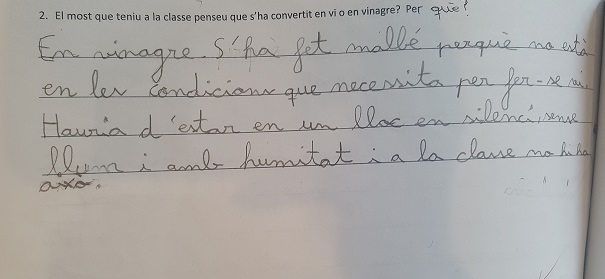 2. El most que teniu a la classe penseu que s'ha convertit en vi o en vinagre? Per què?
En vinagre. S'ha fet mallbé perquè no està
en les condicions que necessita per fer-se vi.
Hauria d'estar en un lloc en silenci, sense
llum i amb humitat i a la classe no hi ha
això.